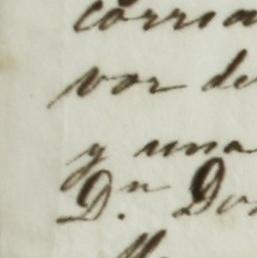 corria
vor de
y una
D.n Do